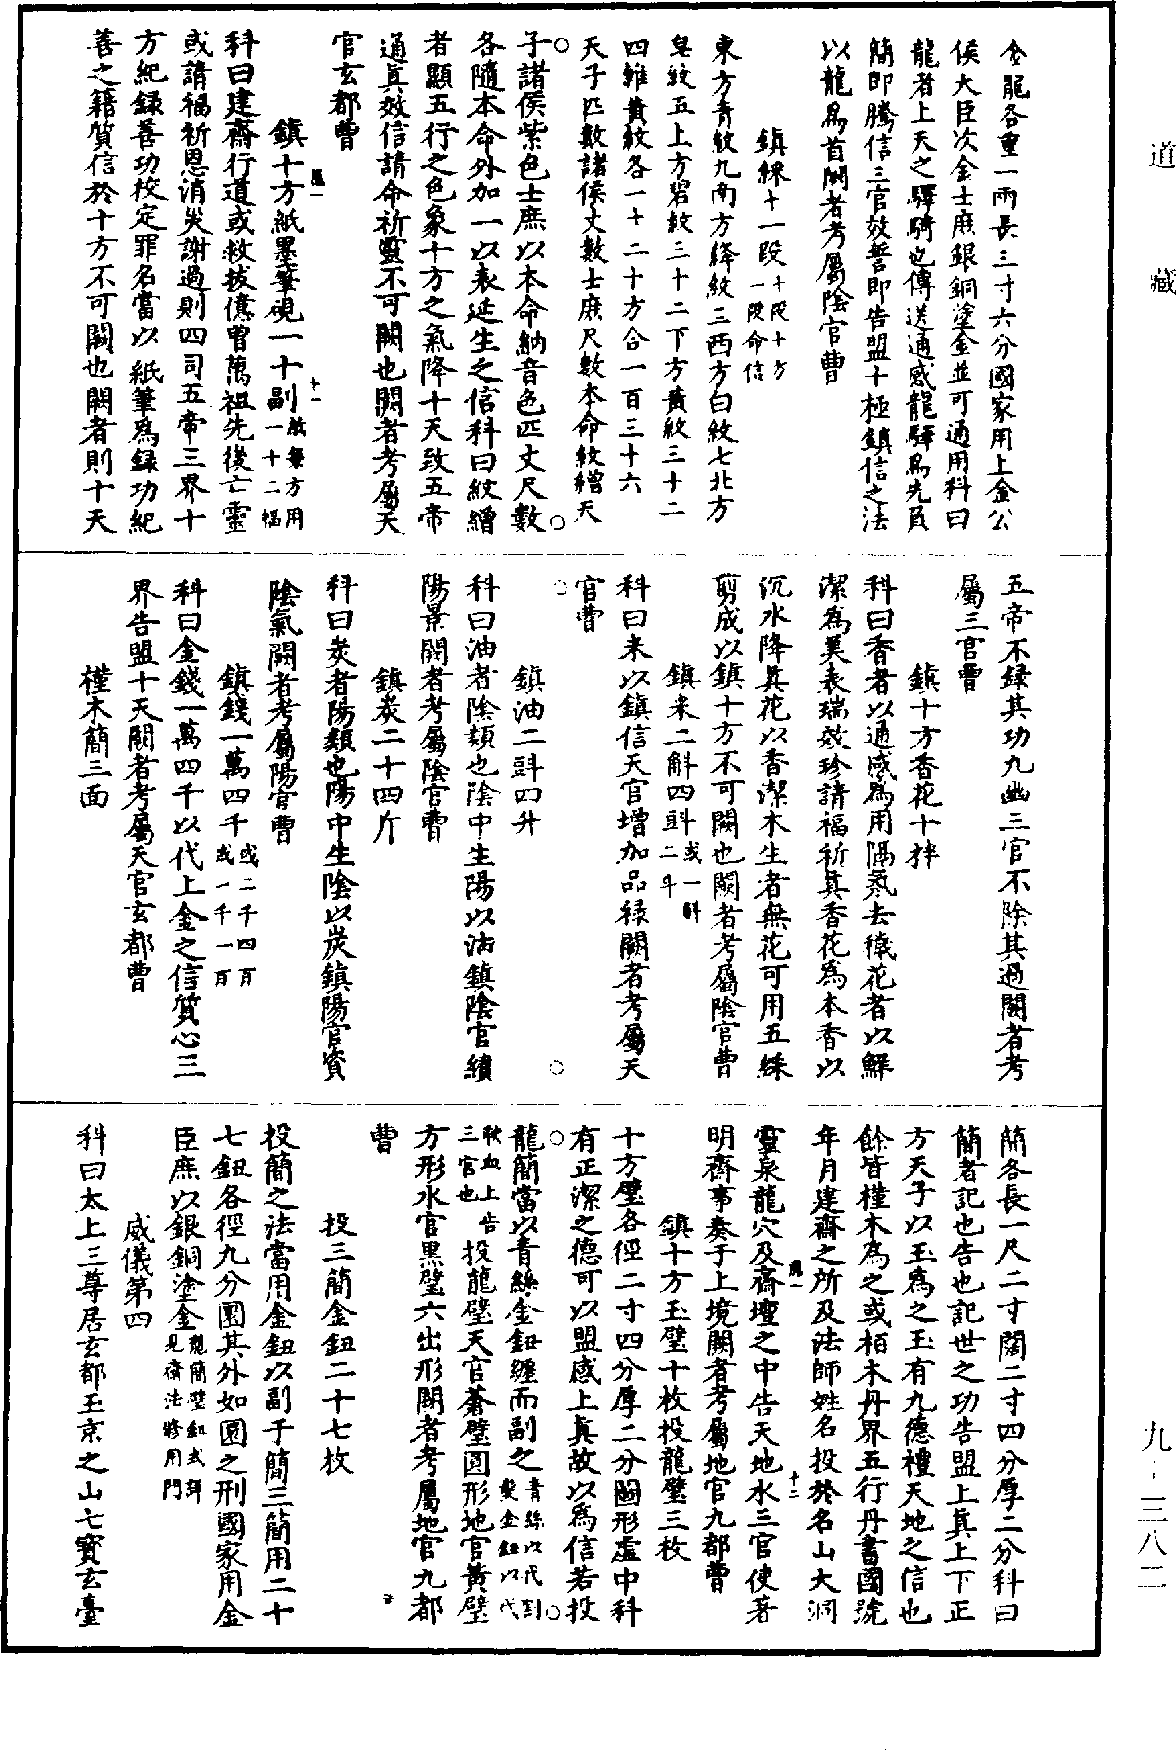 金龍各重一兩長三寸六分國家用上金公
侯大臣次金士庶銀銅塗金並可通用科曰
龍者上天之驛騎也傳送通感龍驛爲先負
簡即騰信三官效誓即告盟十極鎮信之法
以龍爲首闕者考屬陰官曹
鎮綵十一段十段十方一段命信
東方青紋九南方絳紋三西方白紋七北方
皂紋五上方碧紋三十二下方黃紋三十二
四維黃紋各一十二十方合一百三十六
天子匹數諸侯丈數士庶尺數本命紋繒天
子諸侯紫色士庶以本命納音色匹丈尺數
各隨本命外加一以表延生之信科曰紋繒
者顯五行之色象十方之氣降十天致五帝
通真效信請命祈靈不可闕也闕者考屬天
官玄都曹
鎮十方紙墨筆硯一十副故每方用一十二幅
科曰建齋行道或救拔億曾萬祖先後亡靈
或請福祈恩消災謝過則四司五帝三界十
方紀録善功校定罪名當以紙筆爲録功紀
善之籍質信於十方不可闕也闕者則十天
五帝不録其功九幽三官不除其過闕者考
屬三官曹
鎮十方香花十拌
科曰香者以通感爲用隔炁去穢花者以鮮
潔爲美表瑞效珍請福祈真香花爲本香以
沉水降真花以香潔木生者無花可用五綵
剪成以鎮十方不可闕也闕者考屬陰官曹
鎮米二斛四㪷或一斛二斗
科曰米以鎮信天官增加品祿闕者考屬天
官曹
鎮油二㪷四升
科曰油者陰類也陰中生陽以油鎮陰官續
陽景闕者考屬陰官曹
鎮炭二十四斤
科曰炭者陽類也陽中生陰以炭鎮陽官資
陰氣闕者考屬陽官曹
鎮錢一萬四千或二千四百或一千一百
科曰金錢一萬四千以代上金之信質心三
界告盟十天闕者考屬天官玄都曹
槿木簡三面
簡各長一尺二寸闊二寸四分厚二分科曰
簡者記也告也記世之功告盟上真上下正
方天子以玉爲之玉有九德禮天地之信也
餘皆槿木爲之或栢木丹界五行丹書國號
年月建齋之所及法師姓名投於名山大洞
靈泉龍穴及齋壇之中告天地水三官使著
明齋事奏于上境闕者考屬地官九都曹
鎮十方玉璧十枚投龍璧三枚
十方璧各徑二寸四分厚二分圓形虛中科
有正潔之德可以盟感上真故以爲信若投
龍簡當以青絲金鈕纏而副之青絲以代割髮金鈕以代
歃血上告三官也投龍璧天官蒼璧圓形地官黃璧
方形水官黑璧六出形闕者考屬地官九都
曹
投三簡金鈕二十七枚
投簡之法當用金鈕以副于簡三簡用二十
七鈕各徑九分圓其外如圜之刑國家用金
臣庶以銀銅塗金龍簡璧鈕或詳見齋法修用門
威儀第四
科曰太上三尊居玄都玉京之山七寶玄臺
道藏
九·三八二